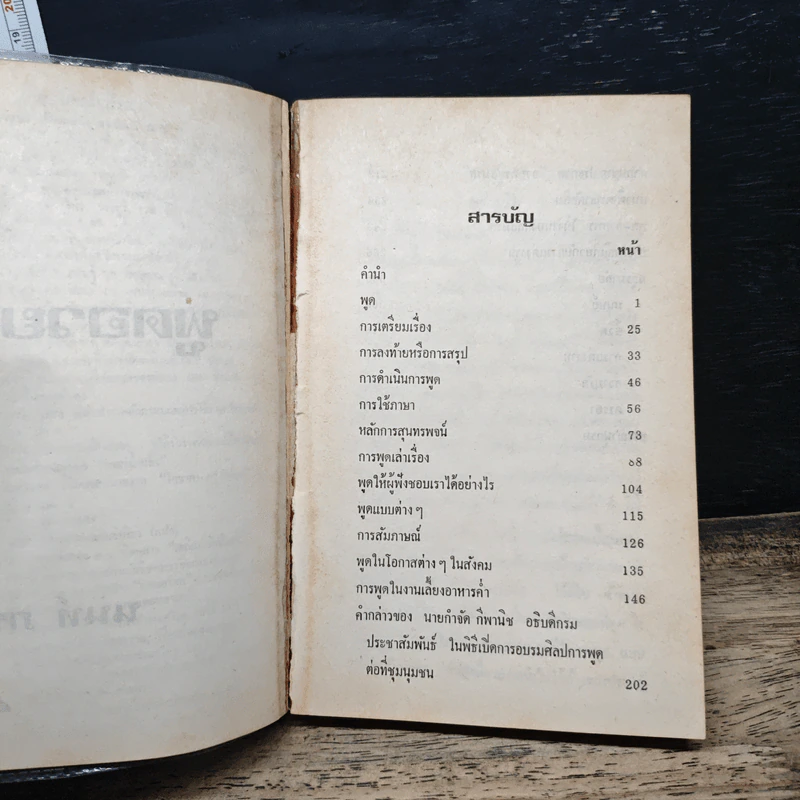 20
19
สารบัญ
หน้า
คำนำ
พูด 1
การเตรียมเรื่อง 25
การลงท้ายหรือการสรุป 33
การดำเนินการพูด 46
การใช้ภาษา 56
หลักการสุนทรพจน์ 73
การพูดเล่าเรื่อง 88
พูดให้ผู้ฟังชอบเราได้อย่างไร 104
พูดแบบต่าง ๆ 115
การสัมภาษณ์ 126
พูดในโอกาสต่าง ๆ ในสังคม 135
การพูดในงานเลี้ยงอาหารค่ำ 146
คำกล่าวของ นายกำจัด กีพานิช อธิบดีกรม
ประชาสัมพันธ์ ในพิธีเปิดการอบรมศิลปการพูด
ต่อที่ชุมนุมชน 202